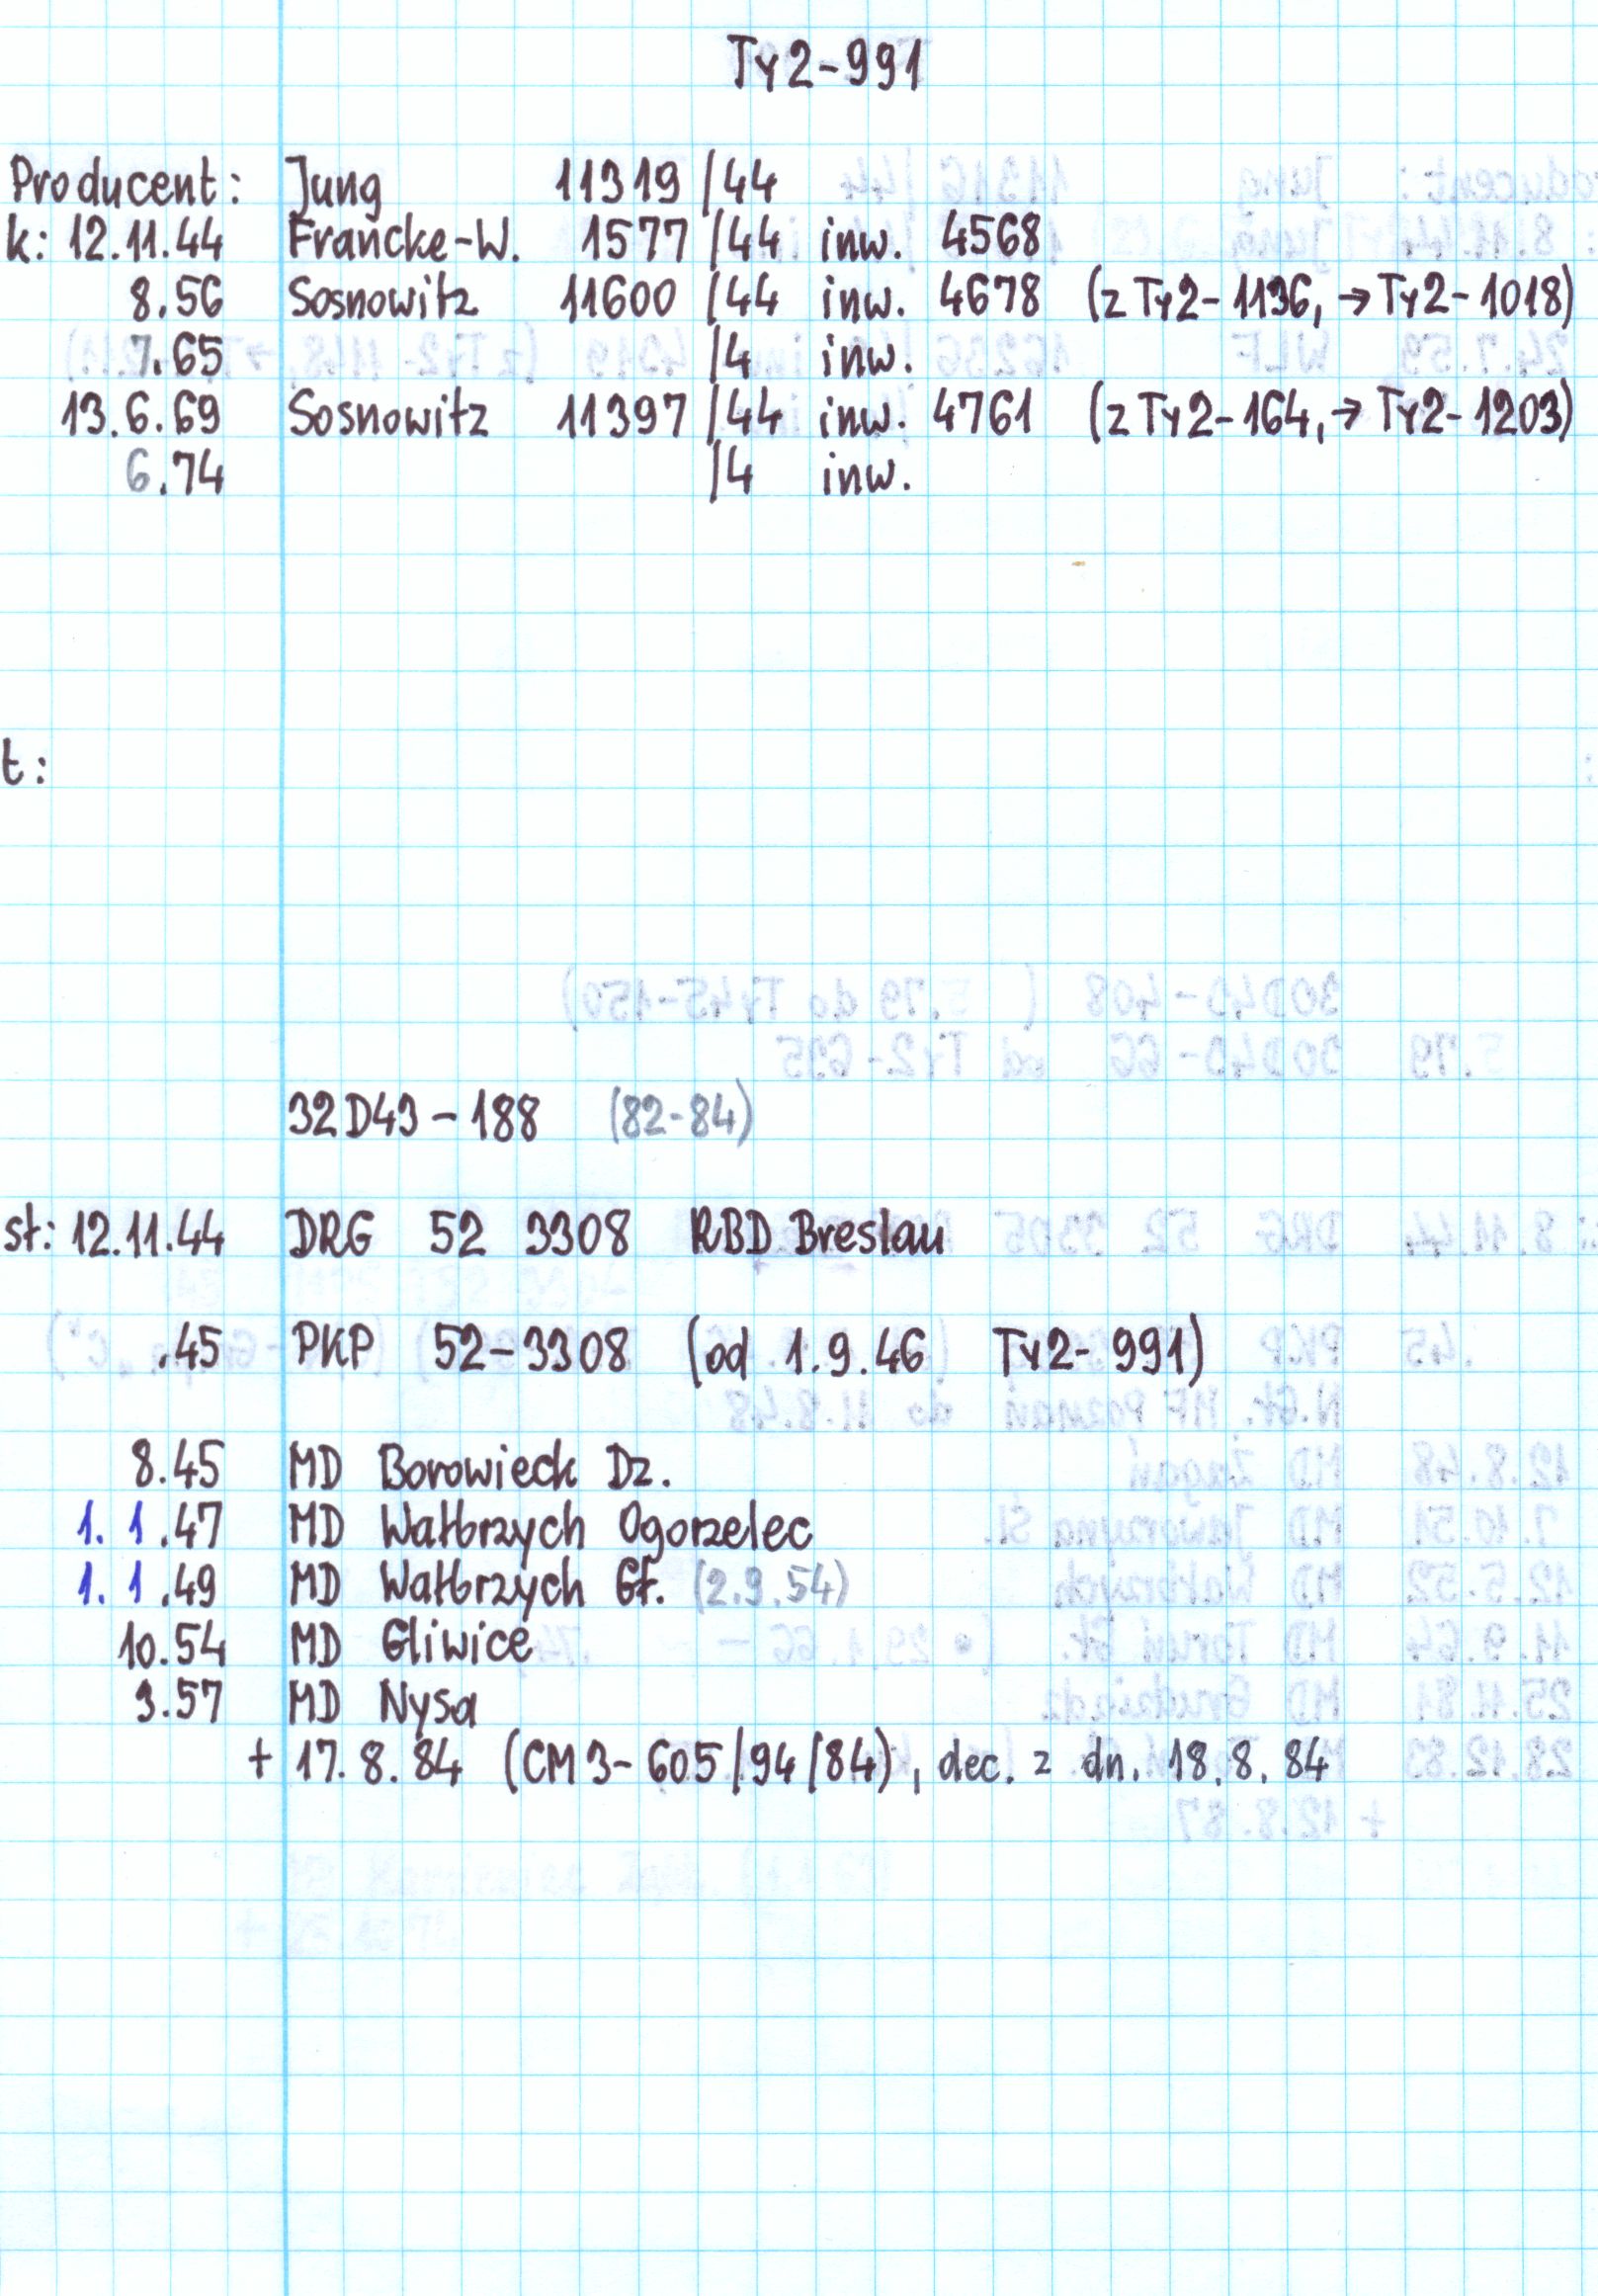 Ty2-991
Producent: Jung 11319/44
k: 12.11.44 Francke-W. 1577/44 inw. 4568
8.56 Sosnowitz 11600/44 inw. 4678 (z Ty2-1136, → Ty2-1018)
7.65 /4 inw.
13.6.69 Sosnowitz 11397/44 inw. 4761 (z Ty2-164, → Ty2-1203)
6.74 /4 inw.
t:
32D43-188 (82-84)
st: 12.11.44 DRG 52 3308 RBD Breslau
.45 PKP 52-3308 (od 1.9.46 Ty2-991)
8.45 MD Borowieck Dz.
1.1.47 MD Wałbrzych Ogorzelec
1.1.49 MD Wałbrzych Gł. (2.9.54)
10.54 MD Gliwice
3.57 MD Nysa
+ 17.8.84 (CM3-605/94/84), dec. z dn. 18.8.84